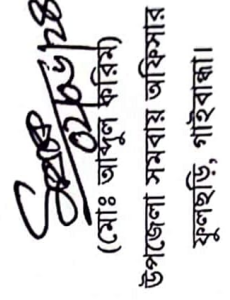 (মোঃ আব্দুল করিম)
উপজেলা সমবায় অফিসার
ফুলছড়ি, গাইবান্ধা।